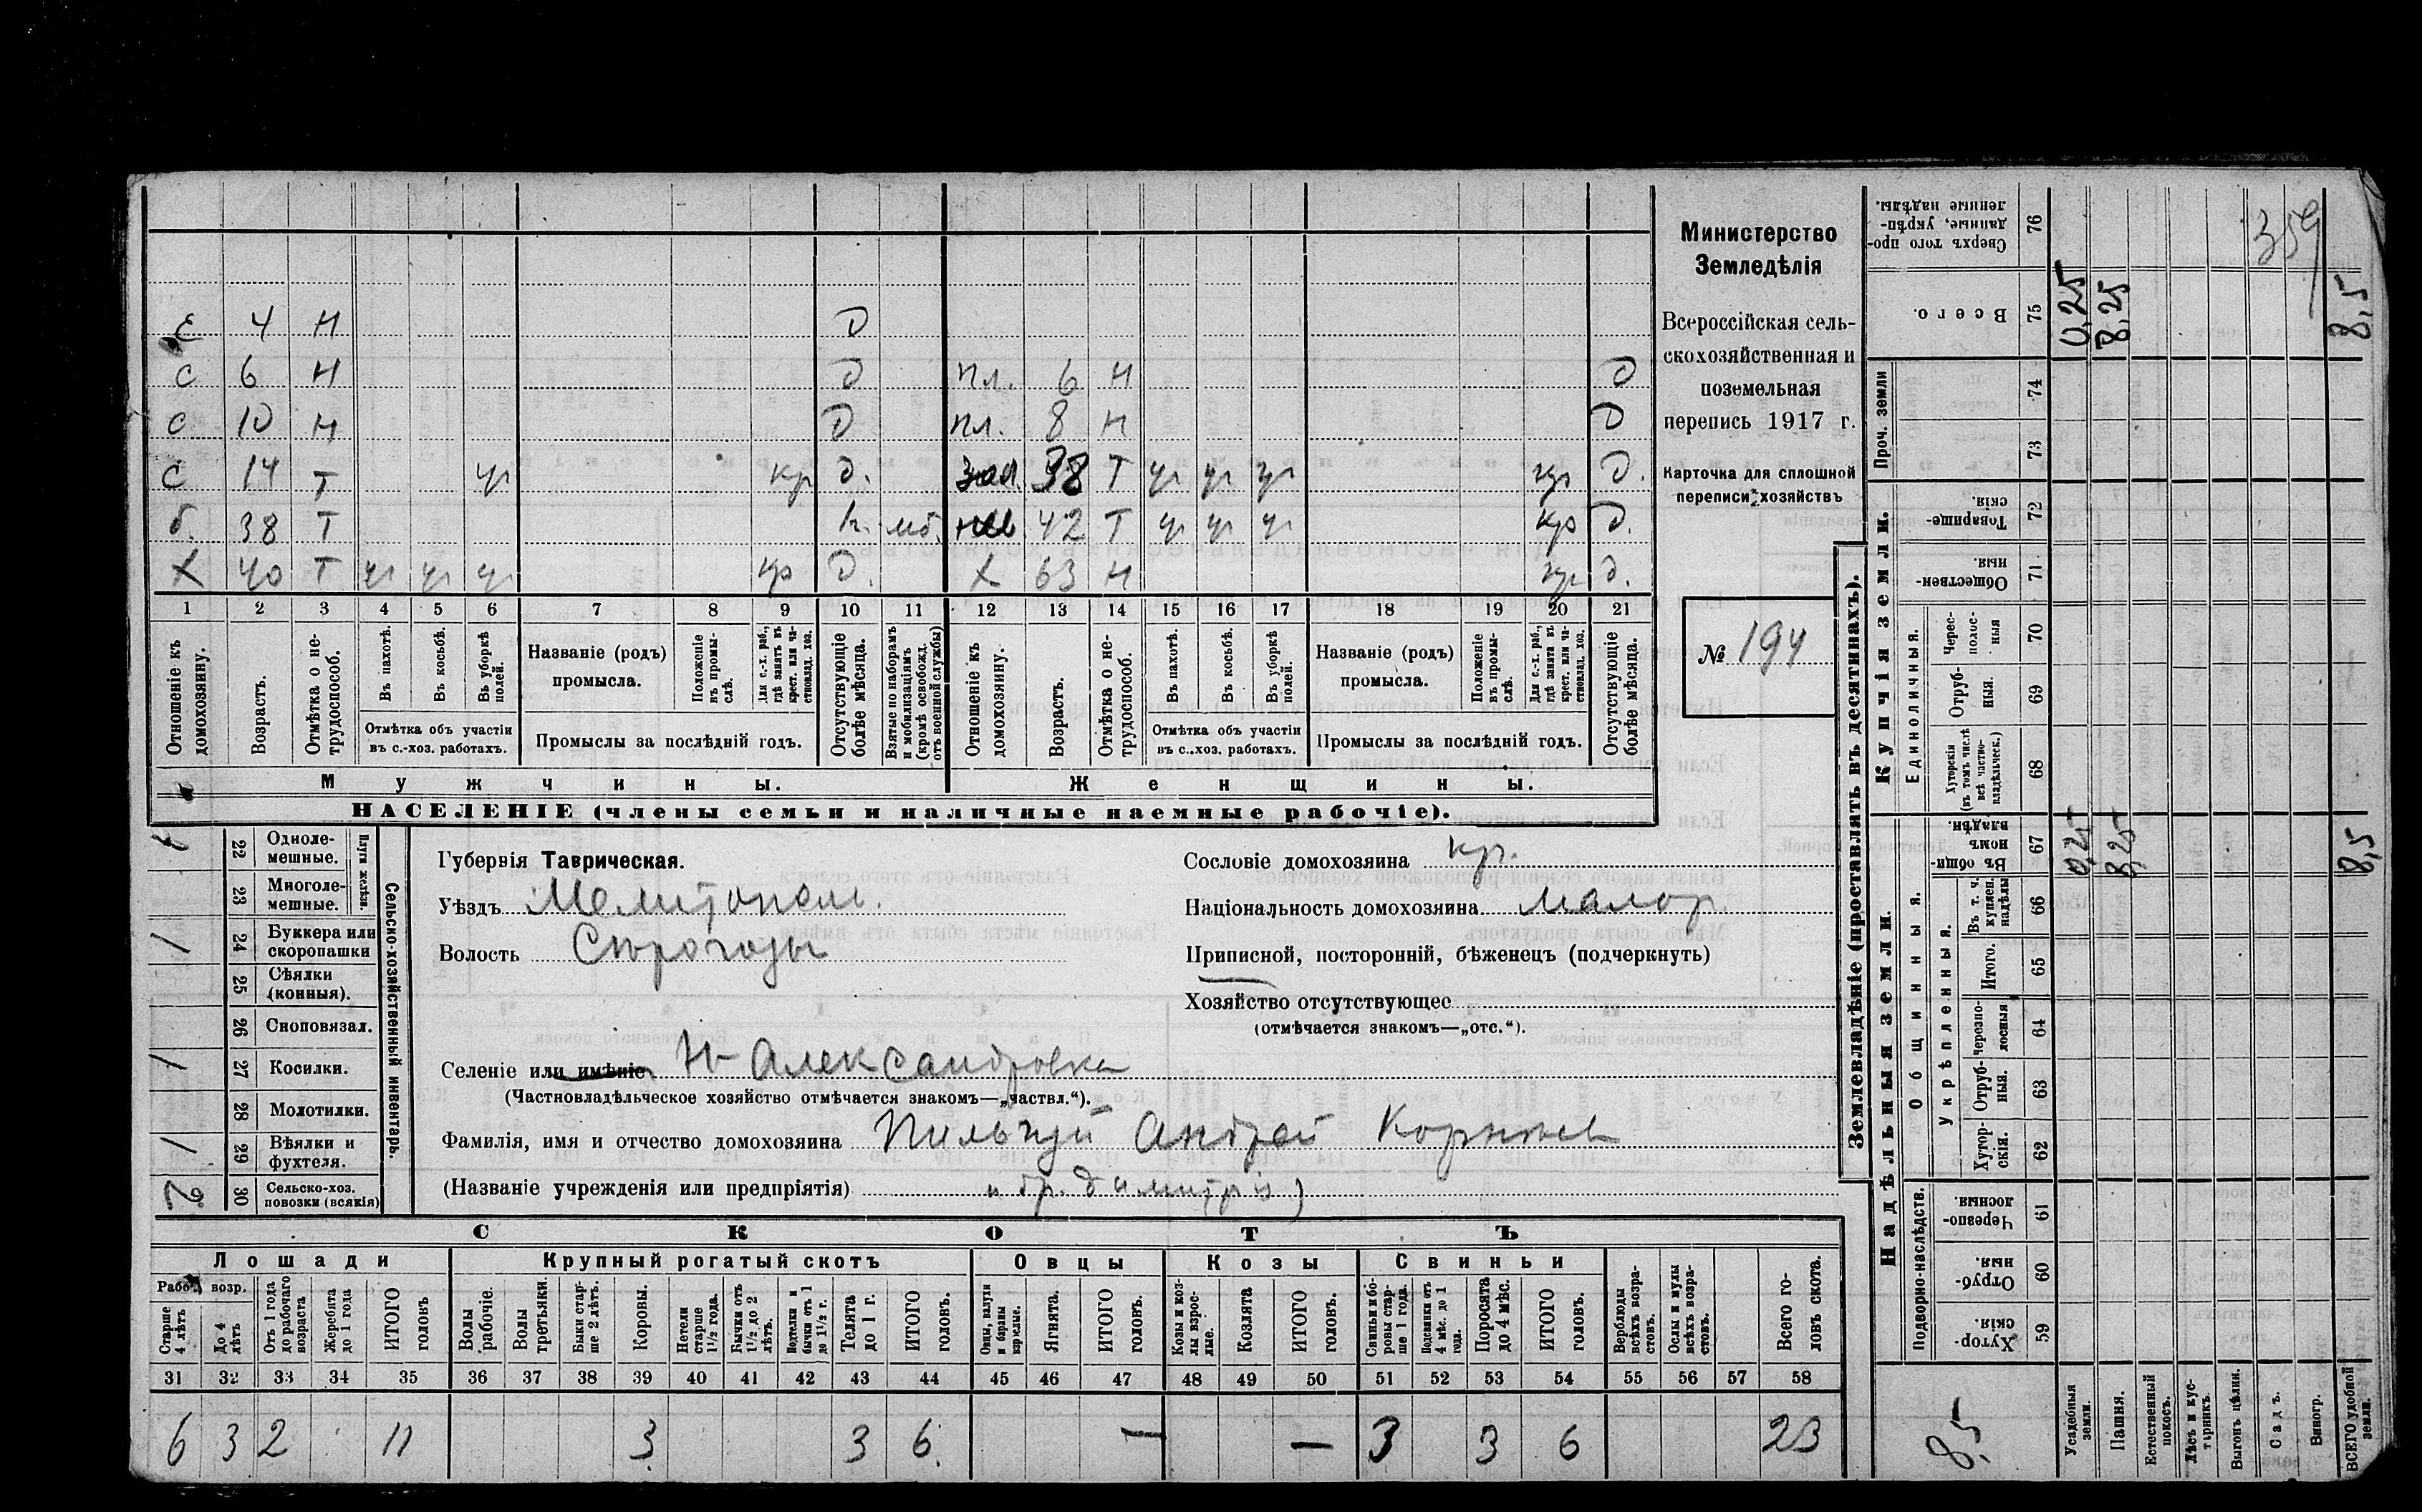 359
Министерство
Земледѣлія
Всероссійская сель-
скохозяйственная и
поземельная
перепись 1917 г.
Карточка для сплошной
переписи хозяйствъ
№ 194
с 4 н д
с 6 н д пл. 6 н д
с 10 н д пл. 8 н д
с 14 т уг кр д. 38 т уг уг уг кр д.
б. 38 т мб. 42 т уг уг уг кр д.
х 40 т уг уг уг кр д. х 63 н кр д.
1 2 3 4 5 6 7 8 9 10 11 12 13 14 15 16 17 18 19 20 21
Отношеніе къ домохозяину.
Возрастъ.
Отмѣтка о не-трудоспособ.
Въ пахотѣ.
Въ косьбѣ.
Въ уборкѣ полей.
Отмѣтка объ участіи
въ с.-хоз. работахъ.
Названіе (родъ)
промысла.
Положеніе въ промы-слѣ.
Для с.-х. раб., гдѣ занятъ въ крест. или ча-ствовлад. хоз.
Промыслы за послѣдній годъ.
Отсутствующіе болѣе мѣсяца.
Взятые по наборамъ и мобилизаціямъ (кромѣ освобожд. отъ военной службы)
Отношеніе къ домохозяину.
Возрастъ.
Отмѣтка о не-трудоспособ.
Въ пахотѣ.
Въ косьбѣ.
Въ уборкѣ полей.
Отмѣтка объ участіи
въ с.-хоз. работахъ.
Названіе (родъ)
промысла.
Положеніе въ промы-слѣ.
Для с.-х. раб., гдѣ занята въ крест. или ча-ствовлад. хоз.
Промыслы за послѣдній годъ.
Отсутствующіе болѣе мѣсяца.
Мужчины.
Женщины.
НАСЕЛЕНІЕ (члены семьи и наличные наемные рабочіе).
Сельско-хозяйственный инвентарь.
Плуги желѣзн.
22 Одноле-мешные. 1
23 Многоле-мешные.
24 Буккера или скоропашки 1
25 Сѣялки (конныя).
26 Сноповязал.
27 Косилки. 1
28 Молотилки.
29 Вѣялки и фухтеля. 1
30 Сельско-хоз. повозки (всякія) 2
Губернія Таврическая.
Уѣздъ Мелитополь.
Волость Сѣрогозы
Сословіе домохозяина кр.
Національность домохозяина малор.
Приписной, посторонній, бѣженецъ (подчеркнуть)
Хозяйство отсутствующее
(отмѣчается знакомъ—„отс.“).
Селеніе или имѣніе Н Александровка
(Частновладѣльческое хозяйство отмѣчается знакомъ—„частвл.“).
Фамилія, имя и отчество домохозяина Пильгуй Андрей Корнѣев
(Названіе учрежденія или предпріятія) и бр. Димитрій)
СКОТЪ
Лошади
Крупный рогатый скотъ
Овцы
Козы
Свиньи
Рабоч. возр.
Старше 4 лѣтъ
До 4 лѣтъ
Отъ 1 года до рабочаго возраста
Жеребята до 1 года
ИТОГО головъ
Волы рабочіе.
Волы третьяки.
Быки стар-ше 2 лѣтъ.
Коровы.
Нетели старше 1½ года.
Бычки отъ 1½ до 2 лѣтъ.
Подтелки и бычки отъ 1 до 1½ г.
Телята до 1 г.
ИТОГО головъ.
Овцы, валухи и бараны взрослые.
Ягнята.
ИТОГО головъ.
Козы и коз-лы взрос-лые.
Козлята
ИТОГО головъ.
Свиньи и бо-ровы стар-ше 1 года.
Подсвинки отъ 4 мѣс. до 1 года.
Поросята до 4 мѣс.
ИТОГО головъ.
Верблюды всѣхъ возра-стовъ.
Ослы и мулы всѣхъ возра-стовъ.
Всего го-ловъ скота.
31 32 33 34 35 36 37 38 39 40 41 42 43 44 45 46 47 48 49 50 51 52 53 54 55 56 57 58
6 3 2 11 3 3 6 — — 3 3 6 23
Землевладѣніе (проставлять въ десятинахъ).
Надѣльныя земли.
Купчія земли.
Проч. земли
Подворно-наслѣдств.
Общинныя.
Укрѣпленныя.
Единоличныя.
Сверхъ того про-данные, укрѣп-ленные надѣлы. 76
Всего. 75
74
73
Товарище-скія. 72
Обществен-ныя. 71
Черес-полос-ныя 70
Отруб-ныя. 69
Хуторскія (въ томъ числѣ всѣ частно-владѣльческ.) 68
Въ общин-номъ владѣн. 67
Въ т. ч. куплен. надѣлы 66
Итого. 65
Черезпо-лосныя 64
Отруб-ныя. 63
Хутор-скія. 62
Черезпо-лосныя. 61
Отруб-ныя. 60
Хутор-скія. 59
0,25 8,25 8,5
0,25 8,25 8,5
8,5
Усадебныя земли.
Пашня.
Естественный покосъ.
Лѣсъ и кус-тарникъ.
Выгонъ цѣлин.
Садъ.
Виногр.
ВСЕГО удобной земли.